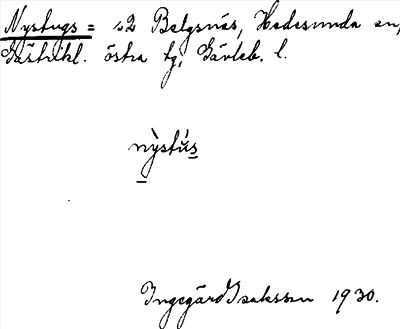 Nystugs = s2 Balgsnäs, Hedesunda sn,
Gästrikl. östra tg, Gävleb. l.
nỳstú̇s
Ingegärd Isaksson 1930.